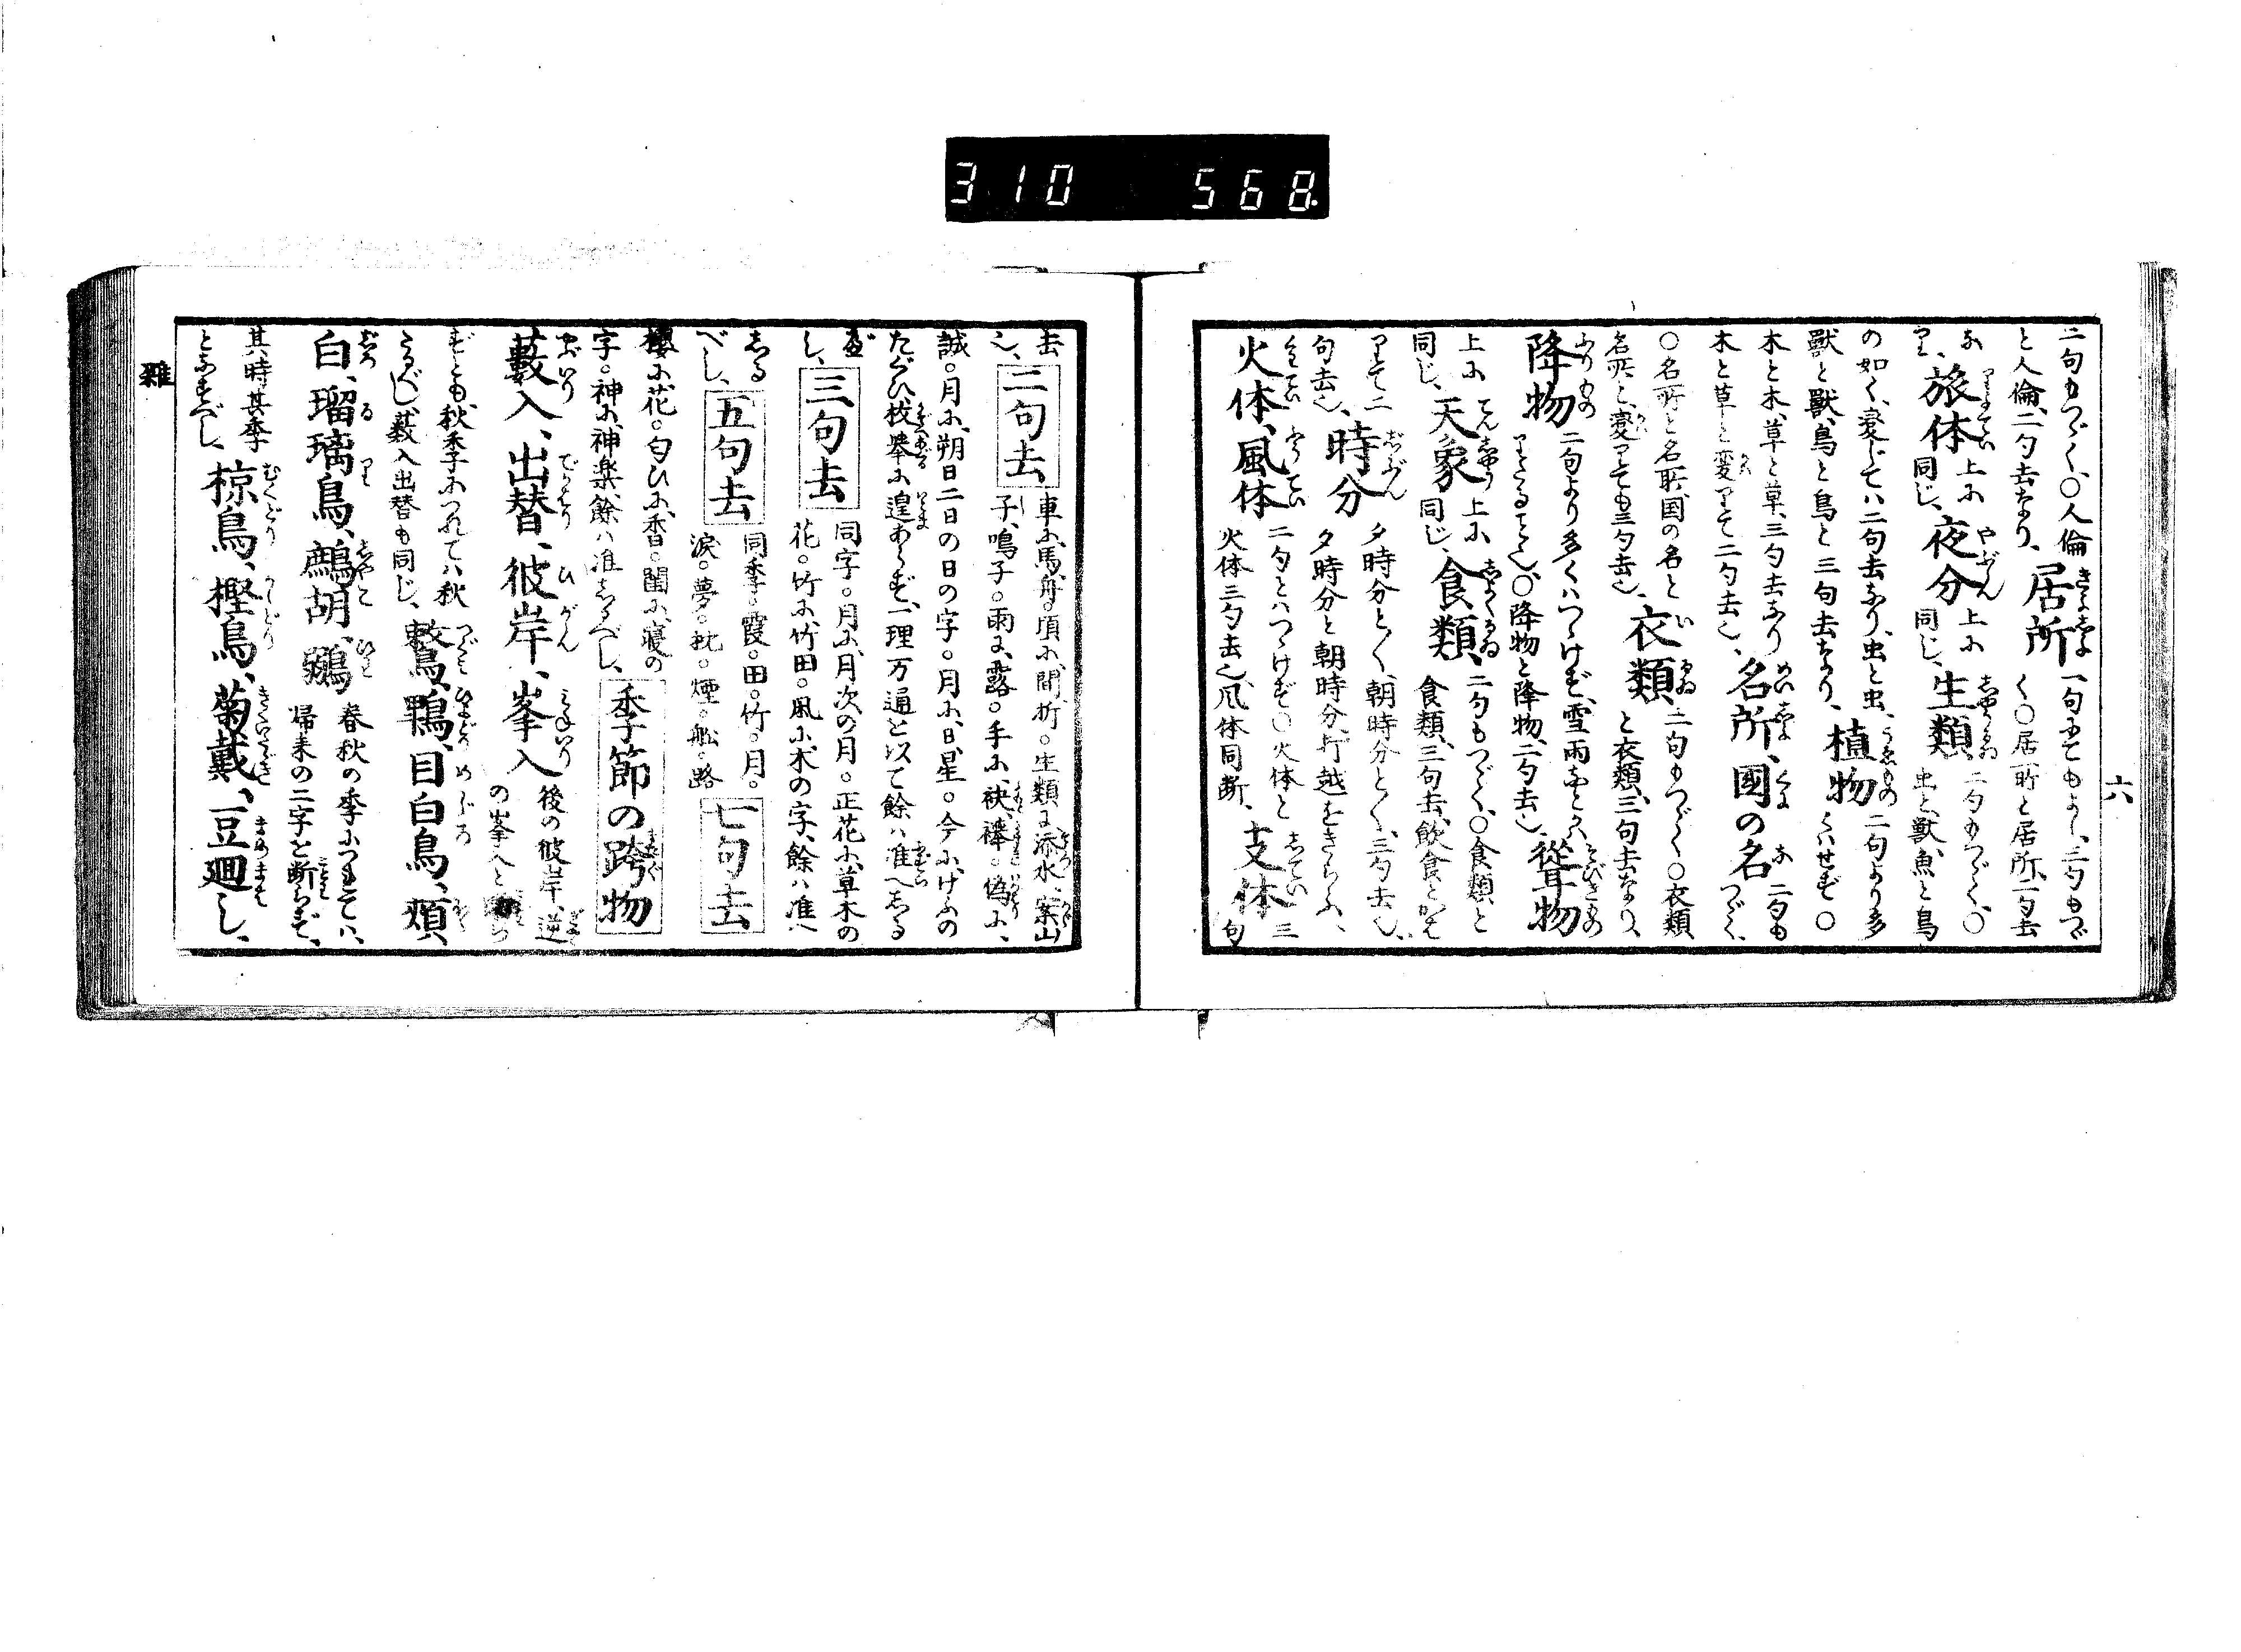 310 568.
六
二句もつゞく、〇人倫
と人倫、二句去なり、
居所
一句にてもよし、二句もつゞ
く〇居所と居所、二句去
なり、
旅体
上に同じ、
夜分
上に同じ、
生類
二句もつゞく、〇
虫と獣、魚と鳥
の如く、変じては二句去なり、虫と虫、
獣と獣、鳥と鳥と三句去なり、
植物
二句より多
くはせず〇
木と木、草と草、三句去なり
木と草と変りて二句去也、
名所、國の名
二句も
つゞく、
〇名所と名所、国の名と
名所と、変りても三句去也、
衣類
二句もつゞく〇衣類
と衣類、三句去なり、
降物
二句より多くはつゞけず、雪雨など
〇降物と降物、二句去也、
聳物
上に同じ、
天象
上に同じ、
食類
二句もつゞく、〇食類と
食類、三句去、飲食と
りて二句去也、
時分
夕時分と
朝時分と
三句去也、
夕時分と朝時分、打越をきらふ、
火体、風体
二句とはつゞけず〇火体と
火体三句去也、風体同断、
支体
三句
去
也、
二句去
車に、馬、舟。頃に、間、折。生類に、添水、案山
子、鳴子。雨に、露。手に、袂、襷。偽に、
誠。月に、朔日二日の日の字。月に、日、星。今に、けふの
たぐひ、枚挙に遑あらず、一理万通と以て餘は准へしる
べし、
三句去
同字。月に、月次の月。正花に、草木の
花。竹に、竹田。風に、木の字、餘は准へ
しる
べし、
五句去
同季。霞。田。竹。月。
涙。夢。枕。煙。船。路
七句去
櫻に花。匂ひに、香。閨に、寝の
字。神に、神楽、餘は准しるべし、
季節の跨物
藪入、出替、彼岸、峯入
後の彼岸、逆
の峯入と
ずとも、秋季につれては秋
なるべし、藪入出替も同じ、
鶫、鵯、目白鳥、頬
白、瑠璃鳥、鷓胡、鶸
春秋の季につれては、
帰来の二字と断らず、
其時其季
となすべし、
椋鳥、樫鳥、菊戴、豆廻し、
雜